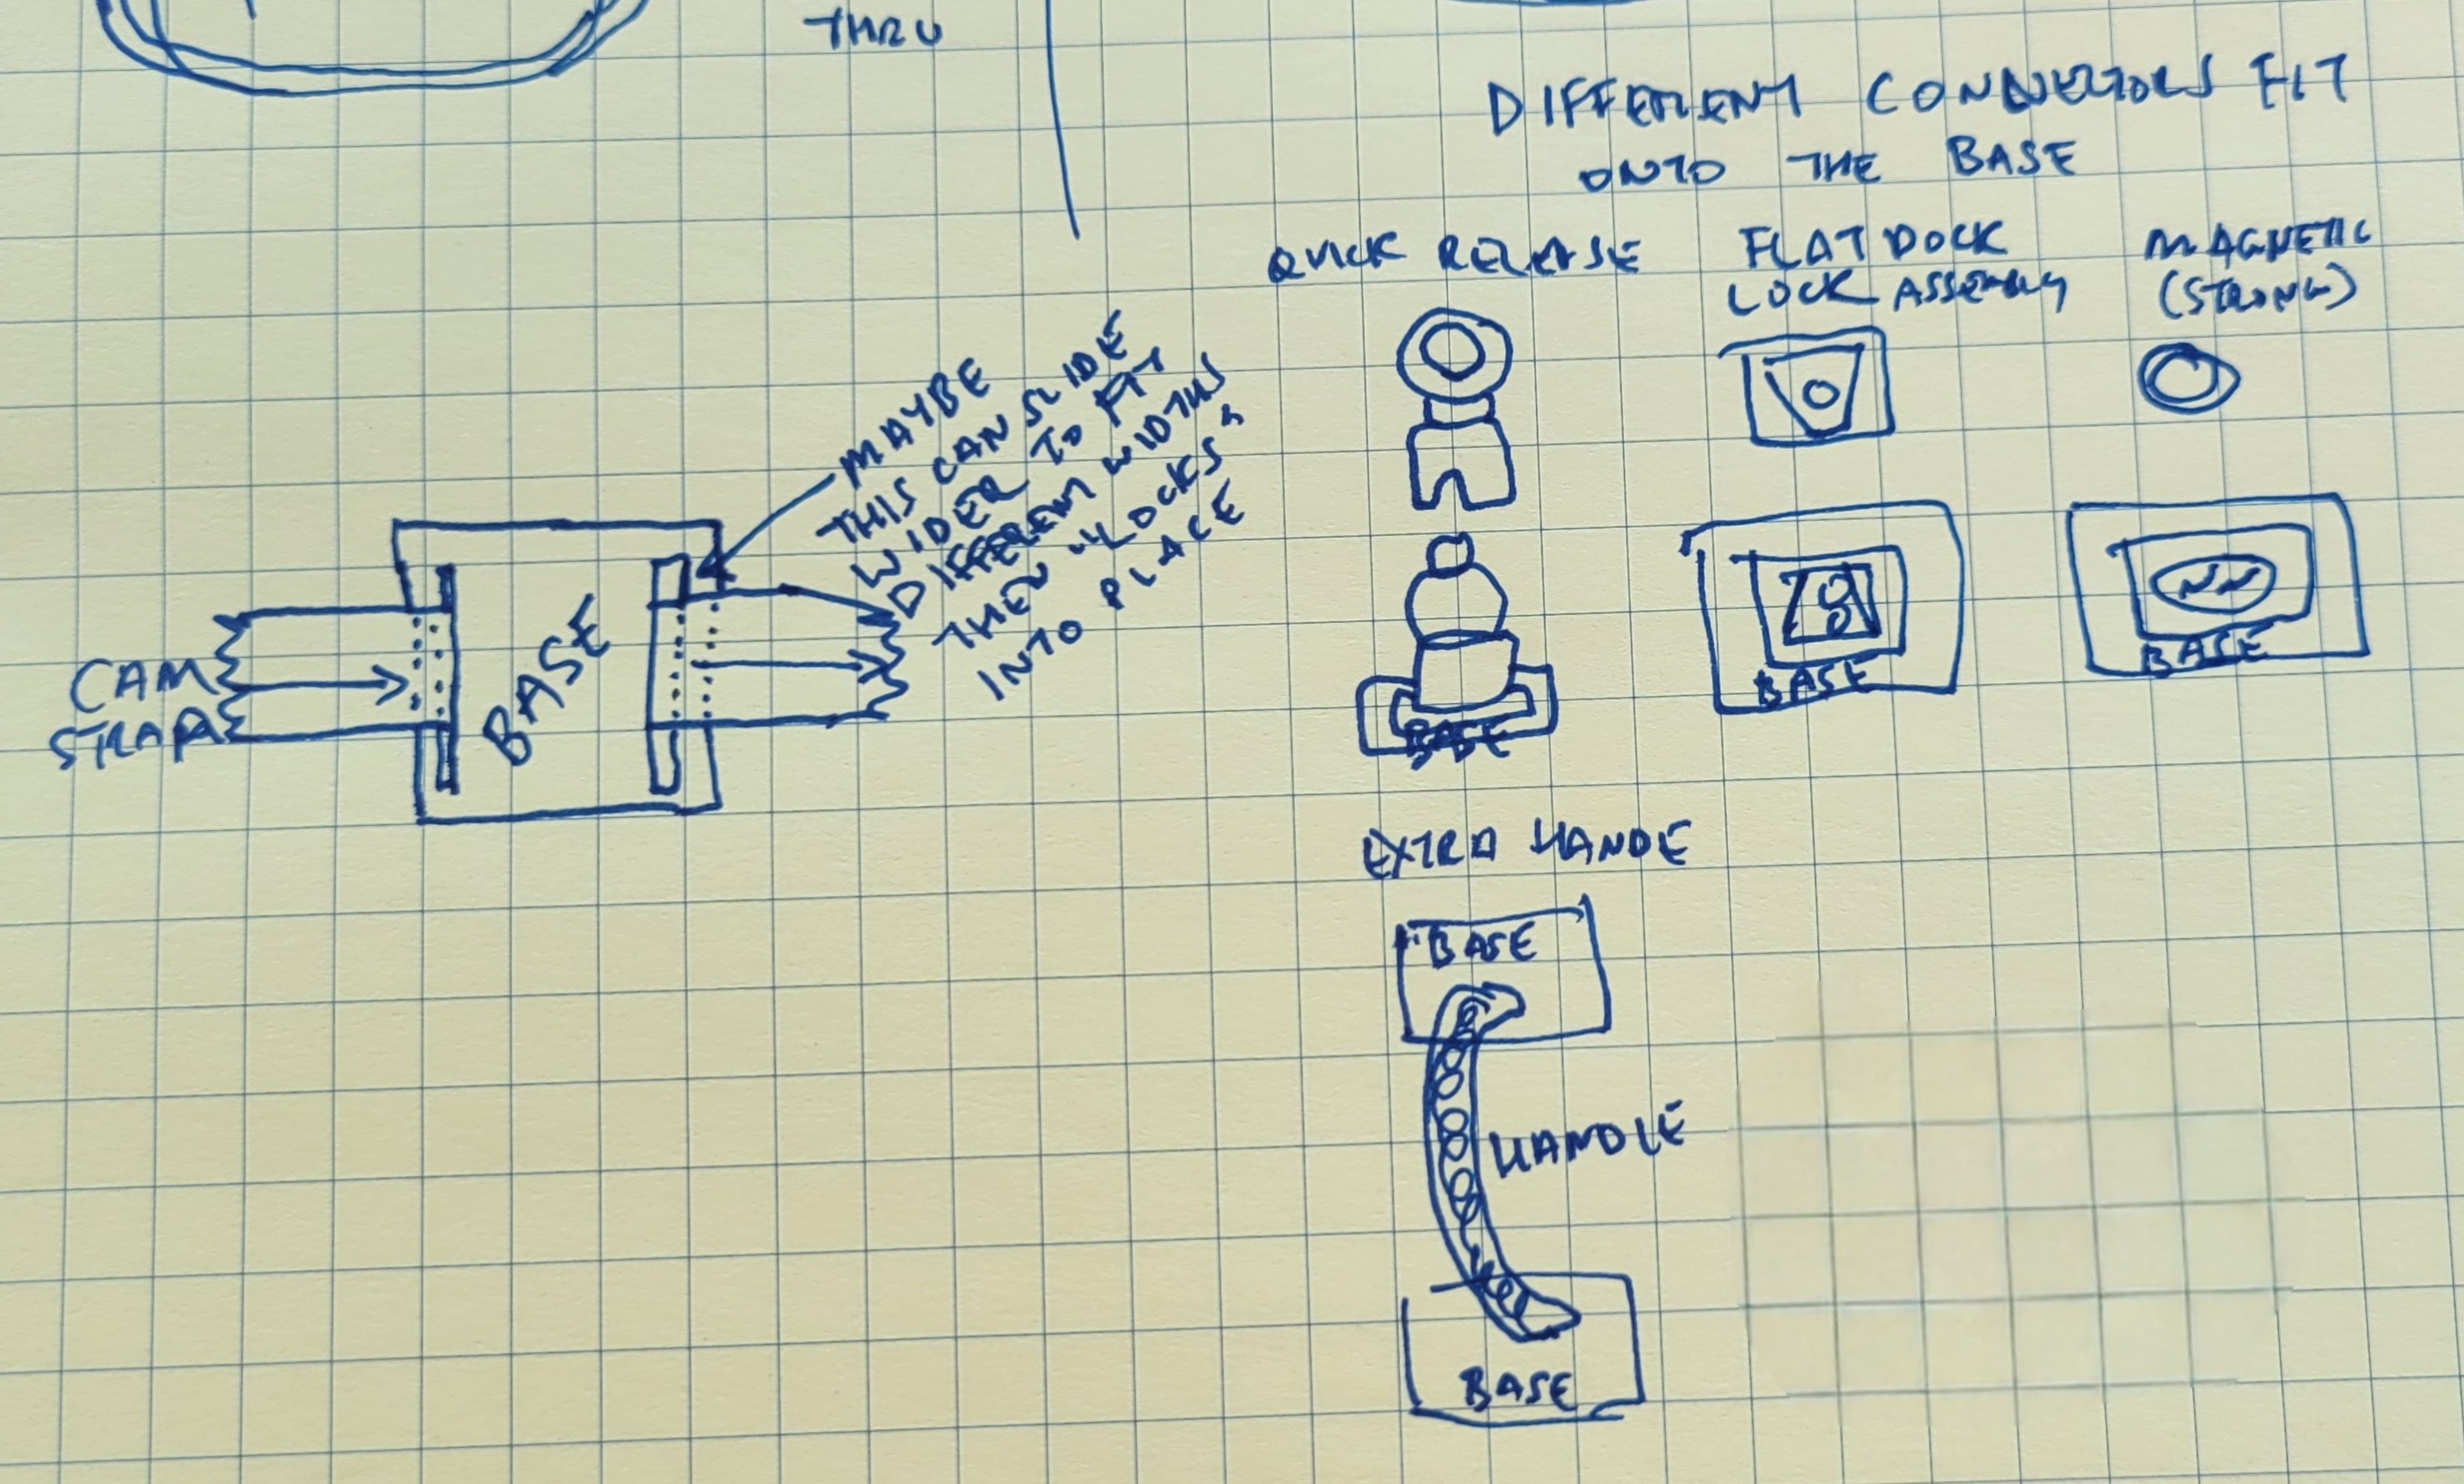 THRU
DIFFERENT CONNECTORS FIT
ONTO THE BASE
QUICK RELEASE
FLAT DOCK
LOCK ASSEMBLY
MAGNETIC
(STRONG)
MAYBE
THIS CAN SLIDE
WIDER TO FIT
DIFFERENT WIDTHS
THEN "LOCKS"
INTO PLACE
CAM
STRAP
BASE
BASE
BASE
BASE
EXTRA HANDE
BASE
HANDLE
BASE